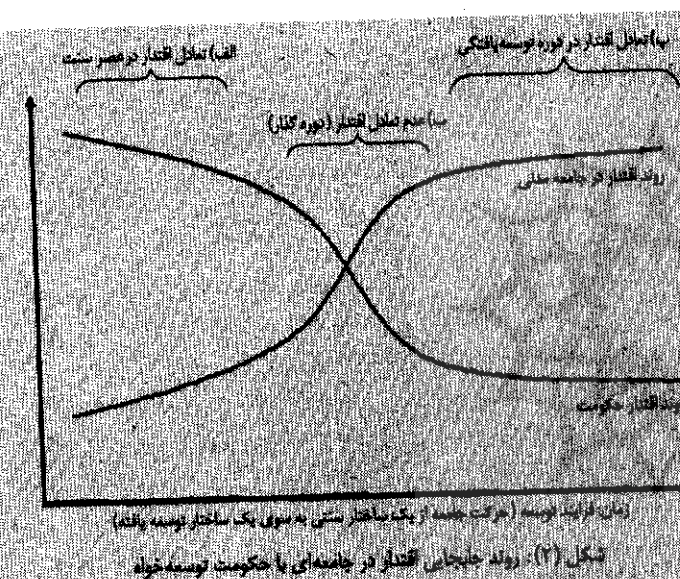 الف) تعادل اقتدار در عصر سنت
پ) تعادل اقتدار در دوره توسعه‌یافتگی
ب) عدم تعادل اقتدار (دوره گذار)
روند اقتدار در جامعه سنتی
روند اقتدار حکومت
زمان: فرایند توسعه (حرکت جامعه از یک ساختار سنتی به سوی یک ساختار توسعه یافته)
شکل (۲): روند جابجایی اقتدار در جامعه‌ای با حکومت توسعه‌خواه